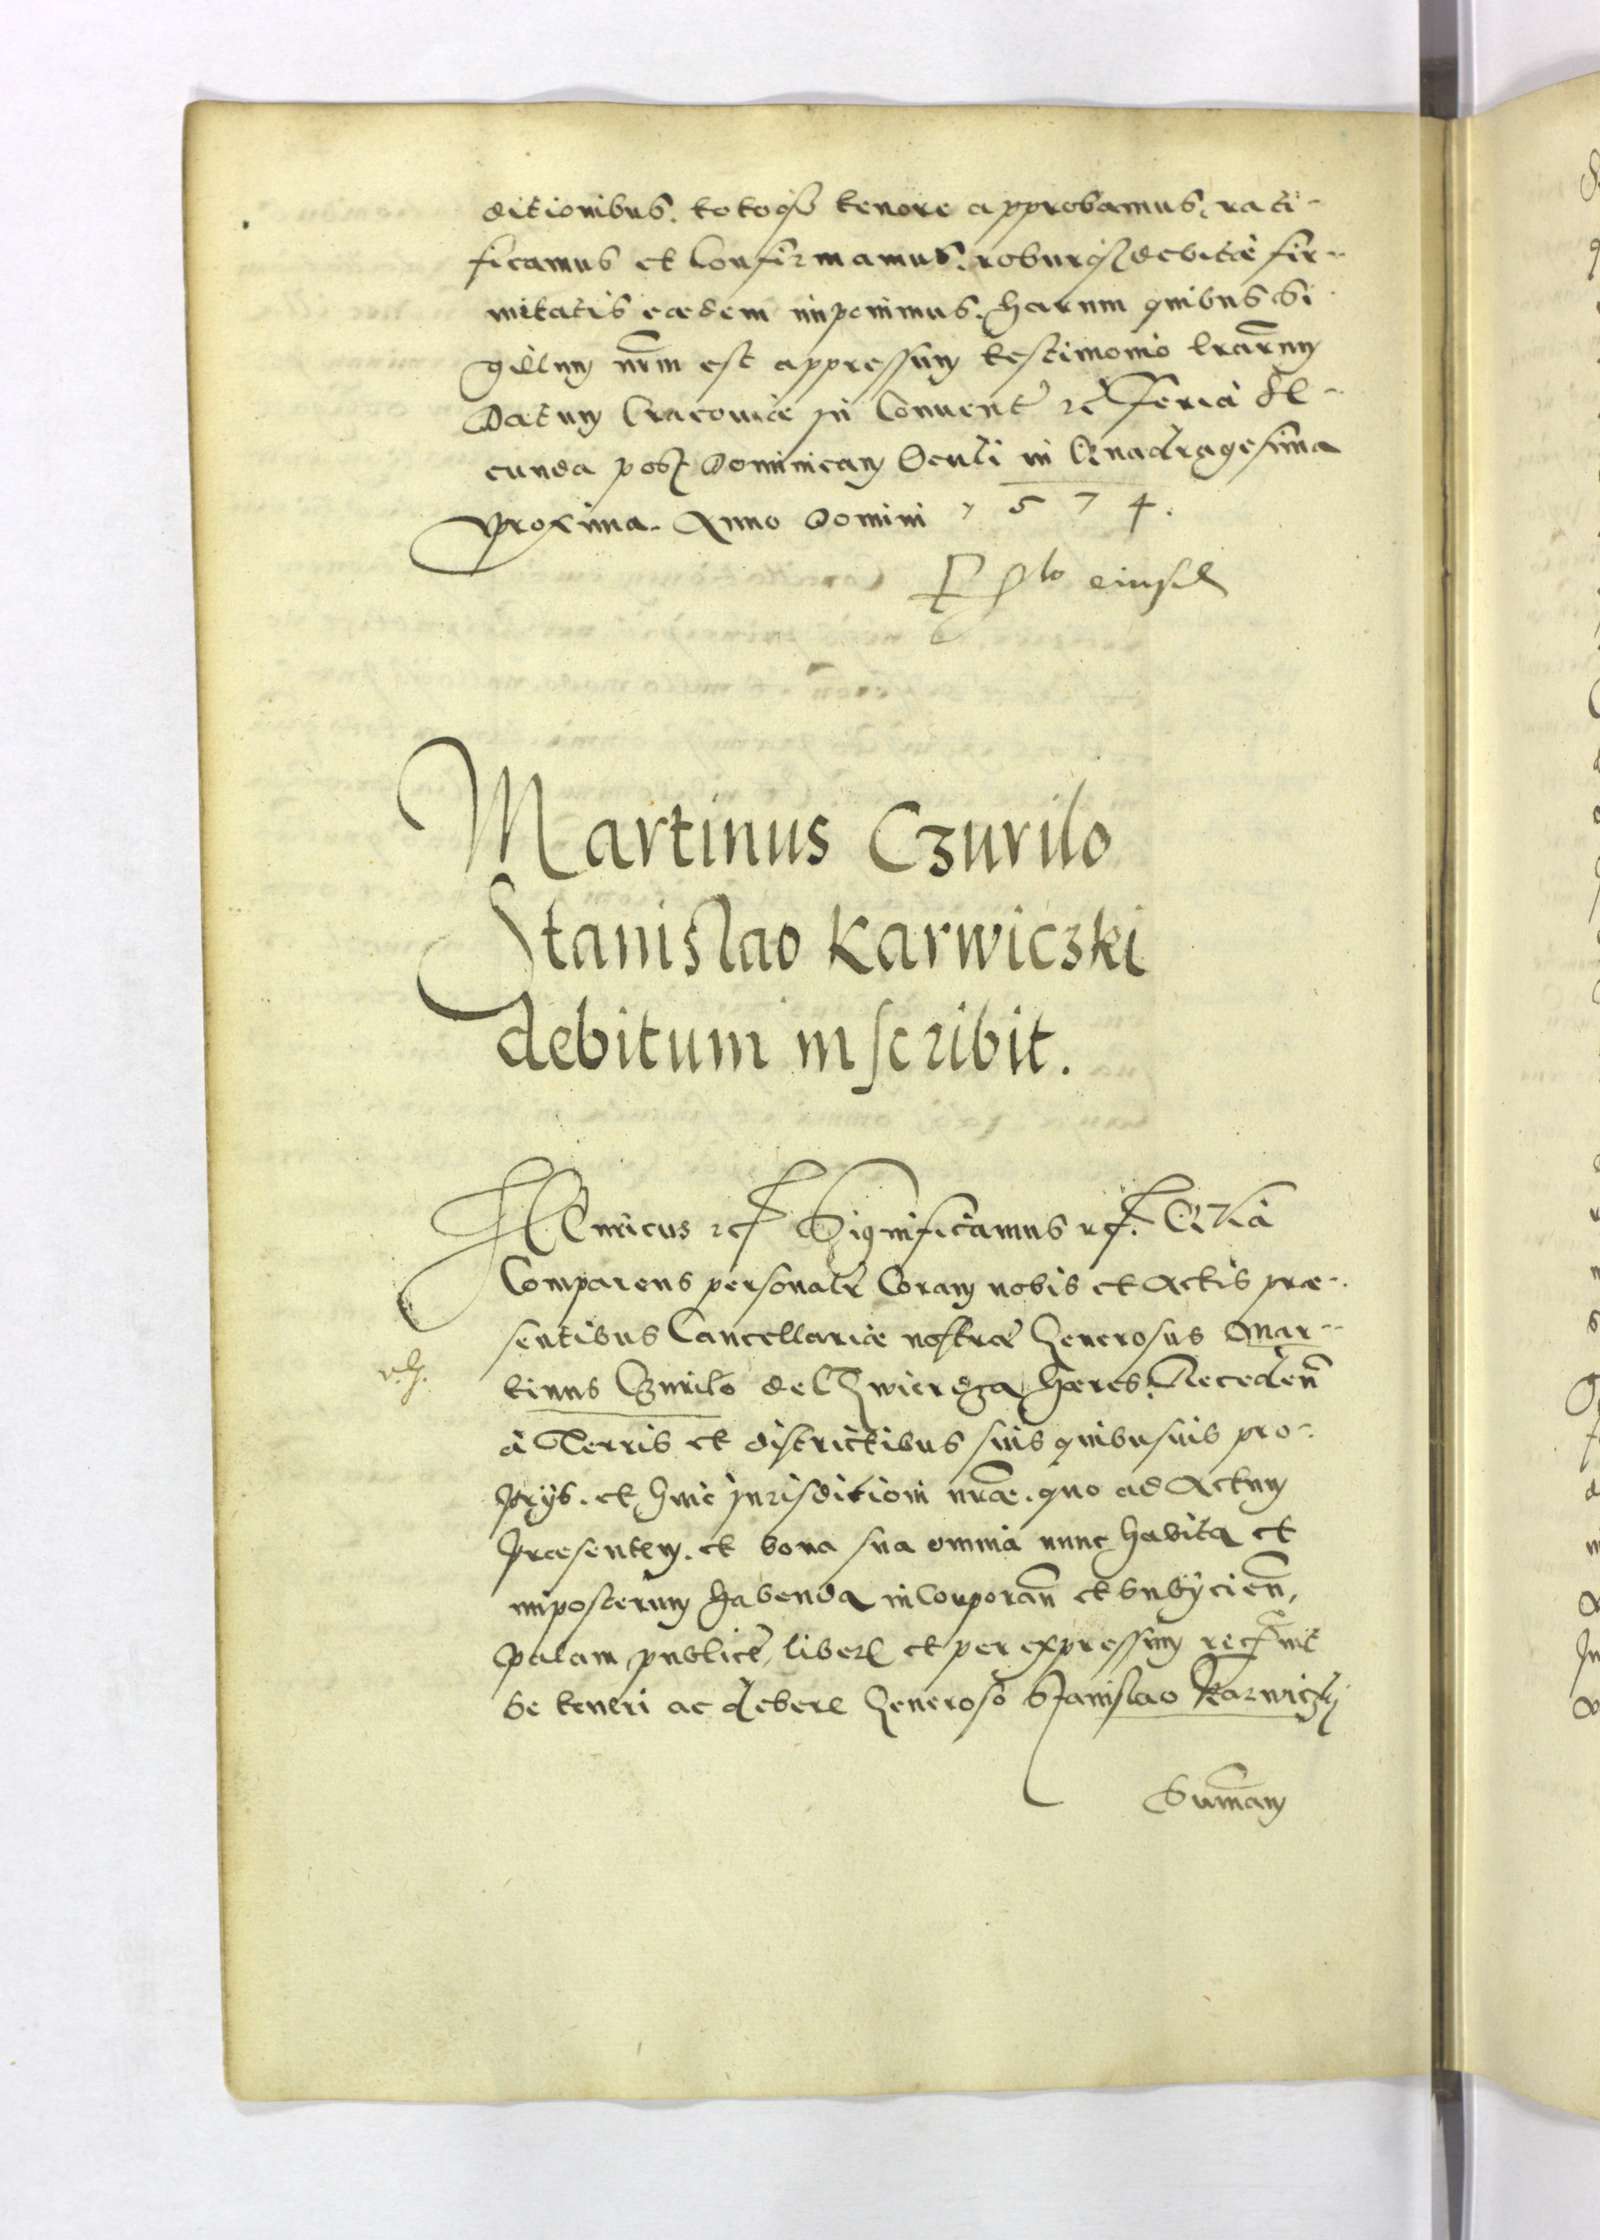 ditionibus. totoq3 tenore approbamus, rati-
ficamus et Confirmamus. roburq3 debitae fir-
mitatis eaedem imponimus. harum quibus Si
gillum nrm est appressum testimonio lrarum
Datum Cracoviae in Convent 2c Feria Se-
cunda post Dominicam Oculi in Quadragesima
Proxima. Anno Domini 1574.
eiusd
Martinus Czurilo
Stanislao Karwiczki
debitum inscribit.
HEnricus 2c Significamus 2c. Quia
Comparens personalr Coram nobis et Actis prae-
sentibus Cancellariae nostrae Generosus Mar-
tinus Czurilo de Zwierdza haeres. Recedenn
à Terris et districtibus suis quibusuis pro-
prijs. et huic jurisditioni nrae. quo ad Actum
Praesentem. et bona sua omnia nunc habita et
imposterum habenda incorporann et subijcienn,
palam publice, libere et per expressum recognit
Se teneri ac debere Generoso Stanislao Karwiczki
Summam